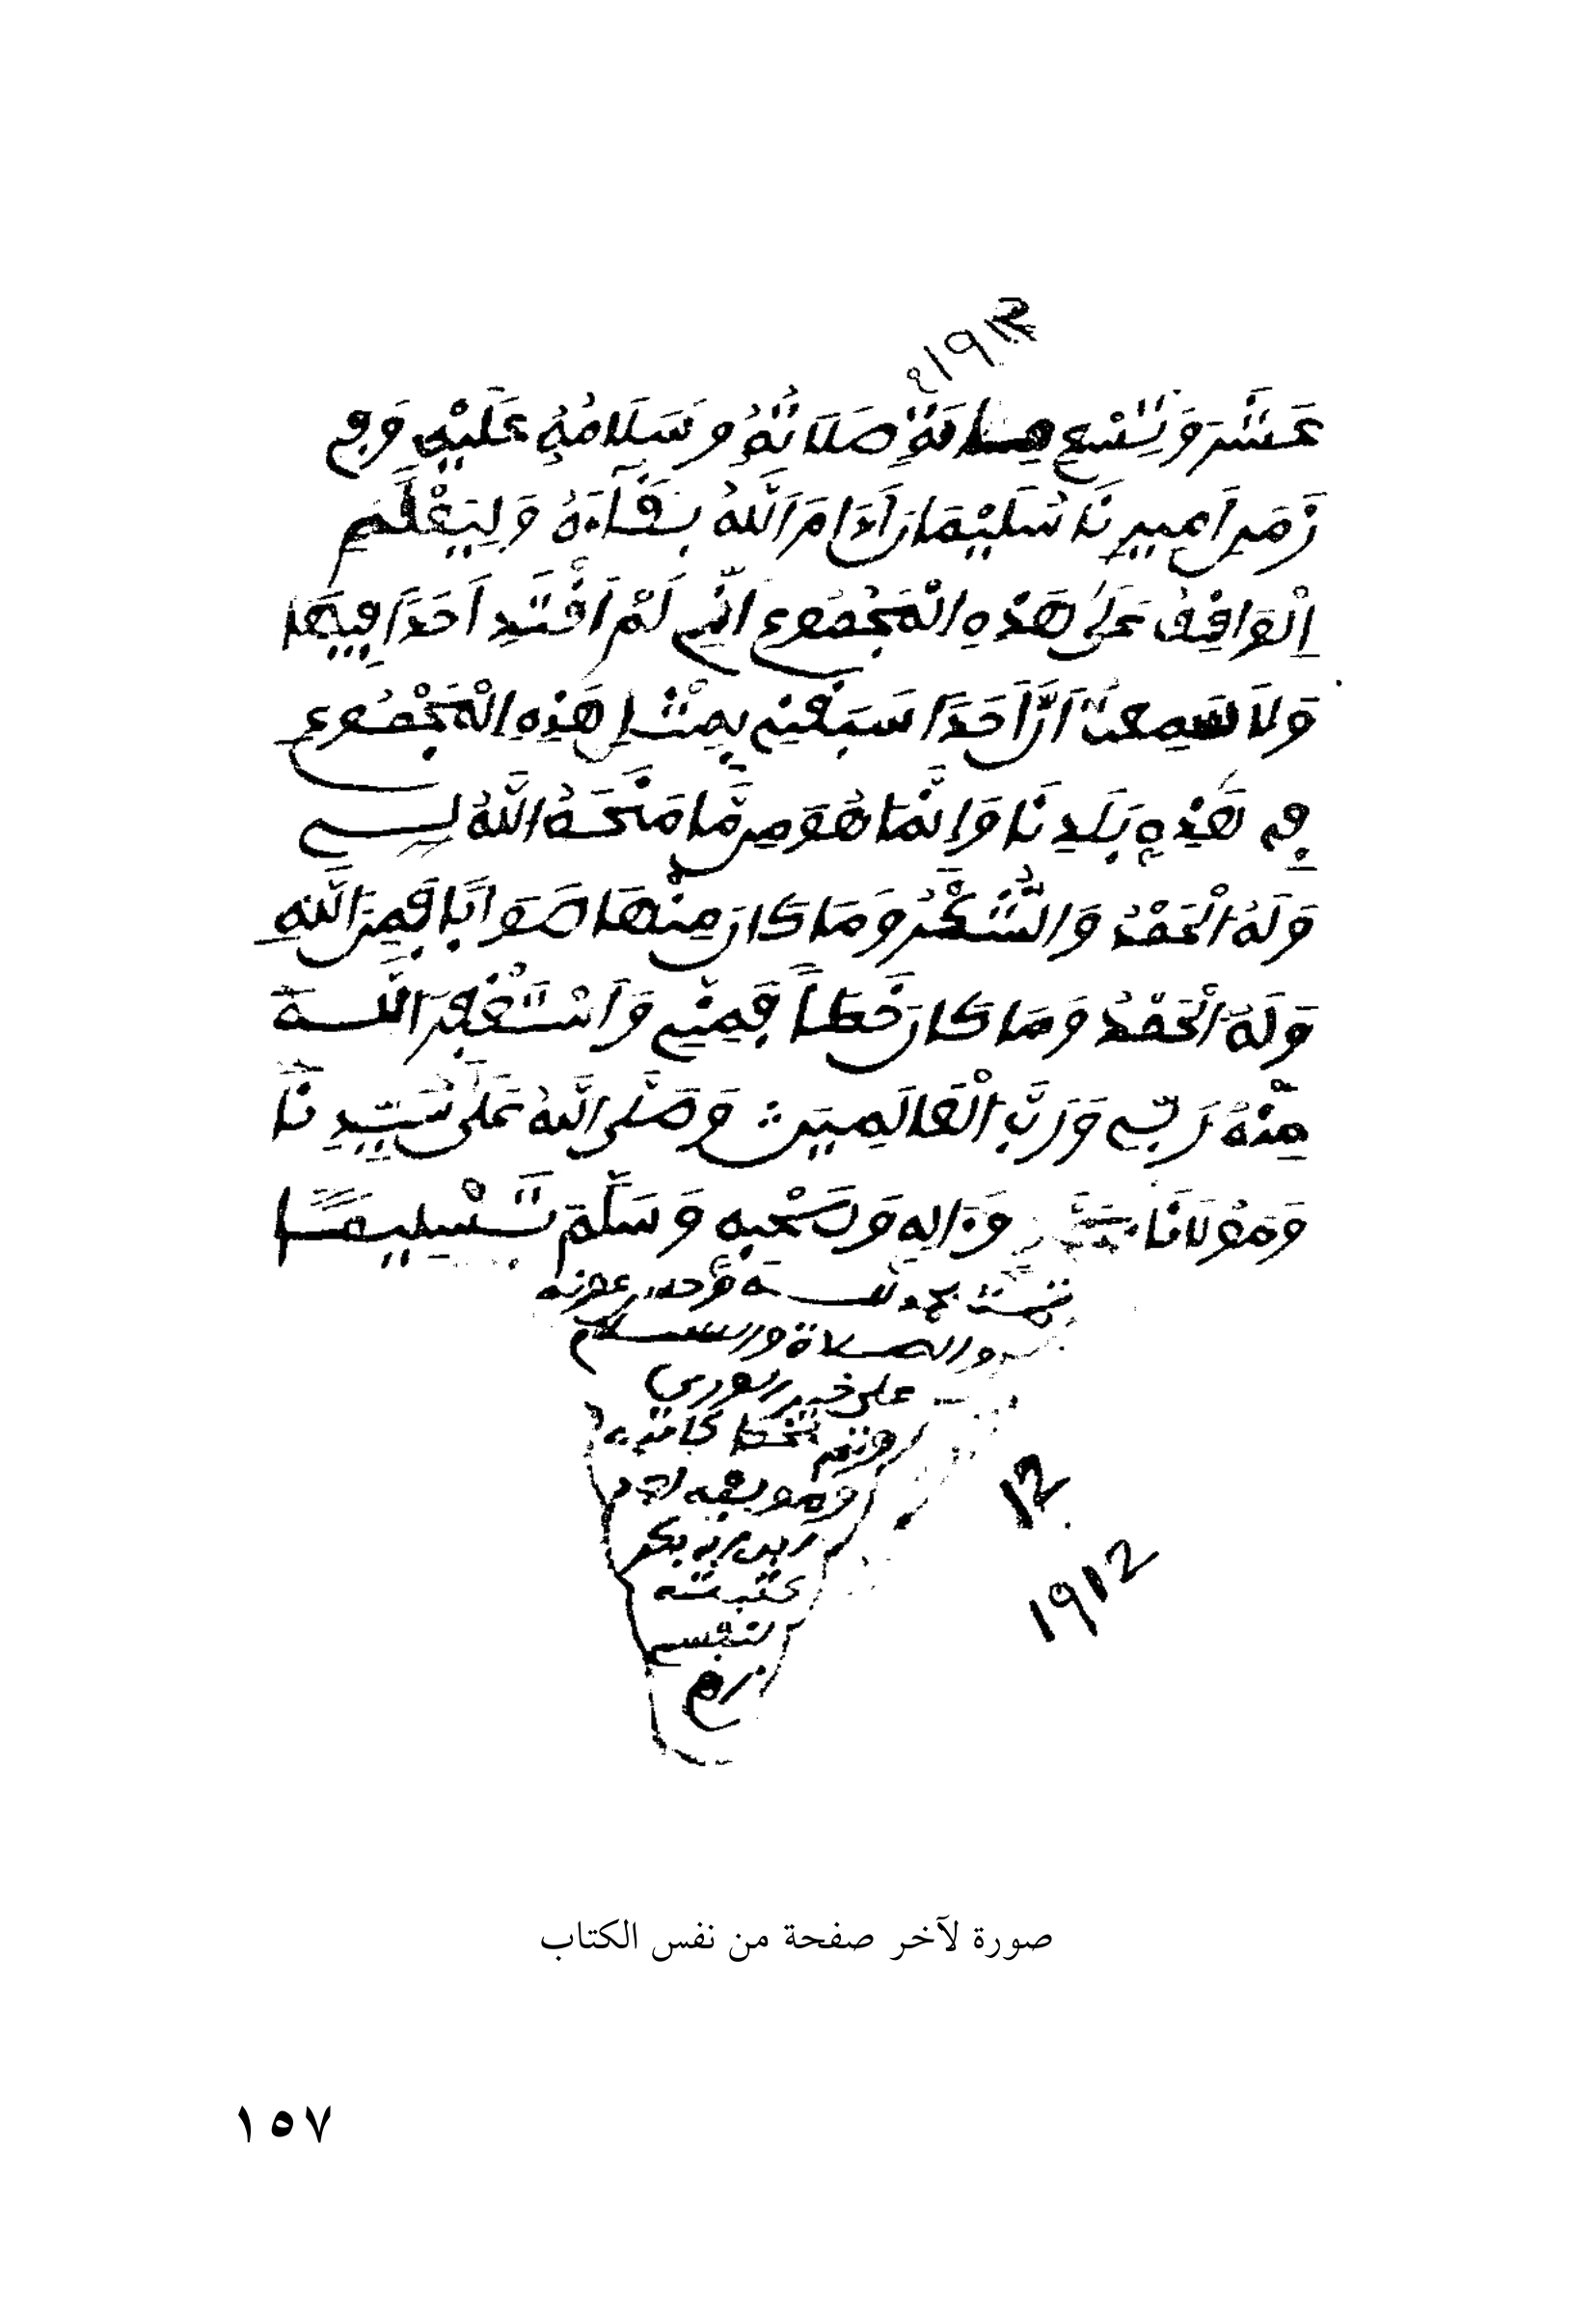 ١٩١٢
عَشَرَ وَتِسْعِ مِائَةٍ صَلَاتُهُ وَسَلَامُهُ عَلَيْهِ وَفِي
زَمَنِ اَمِيرِنَا سُلَيْمَانَ اَدَامَ اَللَّهُ بَقَآءَهُ وَلِيَعْلَمِ
اِلْوَاقِفُ عَلَى هَذِهِ الْمَجْمُوعِ اَنِّي لَمْ اَقْتَدِ اَحَدًا فِيهَا
وَلَا سَمِعْتُ اَنَّ اَحَدًا سَبَقَنِي بِمِثْلِ هَذِهِ الْمَجْمُوعِ
فِي هَذِهِ بَلَدِنَا وَاِنَّمَا هُوَ مِمَّا مَنَحَهُ اللَّهُ لِي
وَلَهُ الْحَمْدُ وَالشُّكْرُ وَمَا كَانَ مِنْهَا صَوَابًا فَمِنَ اللَّهِ
وَلَهُ الْحَمْدُ وَمَا كَانَ خَطَأً فَمِنِّي وَاَسْتَغْفِرُ اللَّهَ
مِنْهُ رَبِّي وَرَبَّ الْعَالَمِينَ وَصَلَّى اللَّهُ عَلَى سَيِّدِنَا
وَمَوْلَانَا مُحَمَّدٍ وَءَالِهِ وَصَحْبِهِ وَسَلَّمَ تَسْلِيمًا
تمت بحمد لله وحسن عونه
والصلاة والسلام
على خير الورى
بخط كاتبه
بكر
كتبته
لنفسي
12
1912
صورة لآخر صفحة من نفس الكتاب
١٥٧